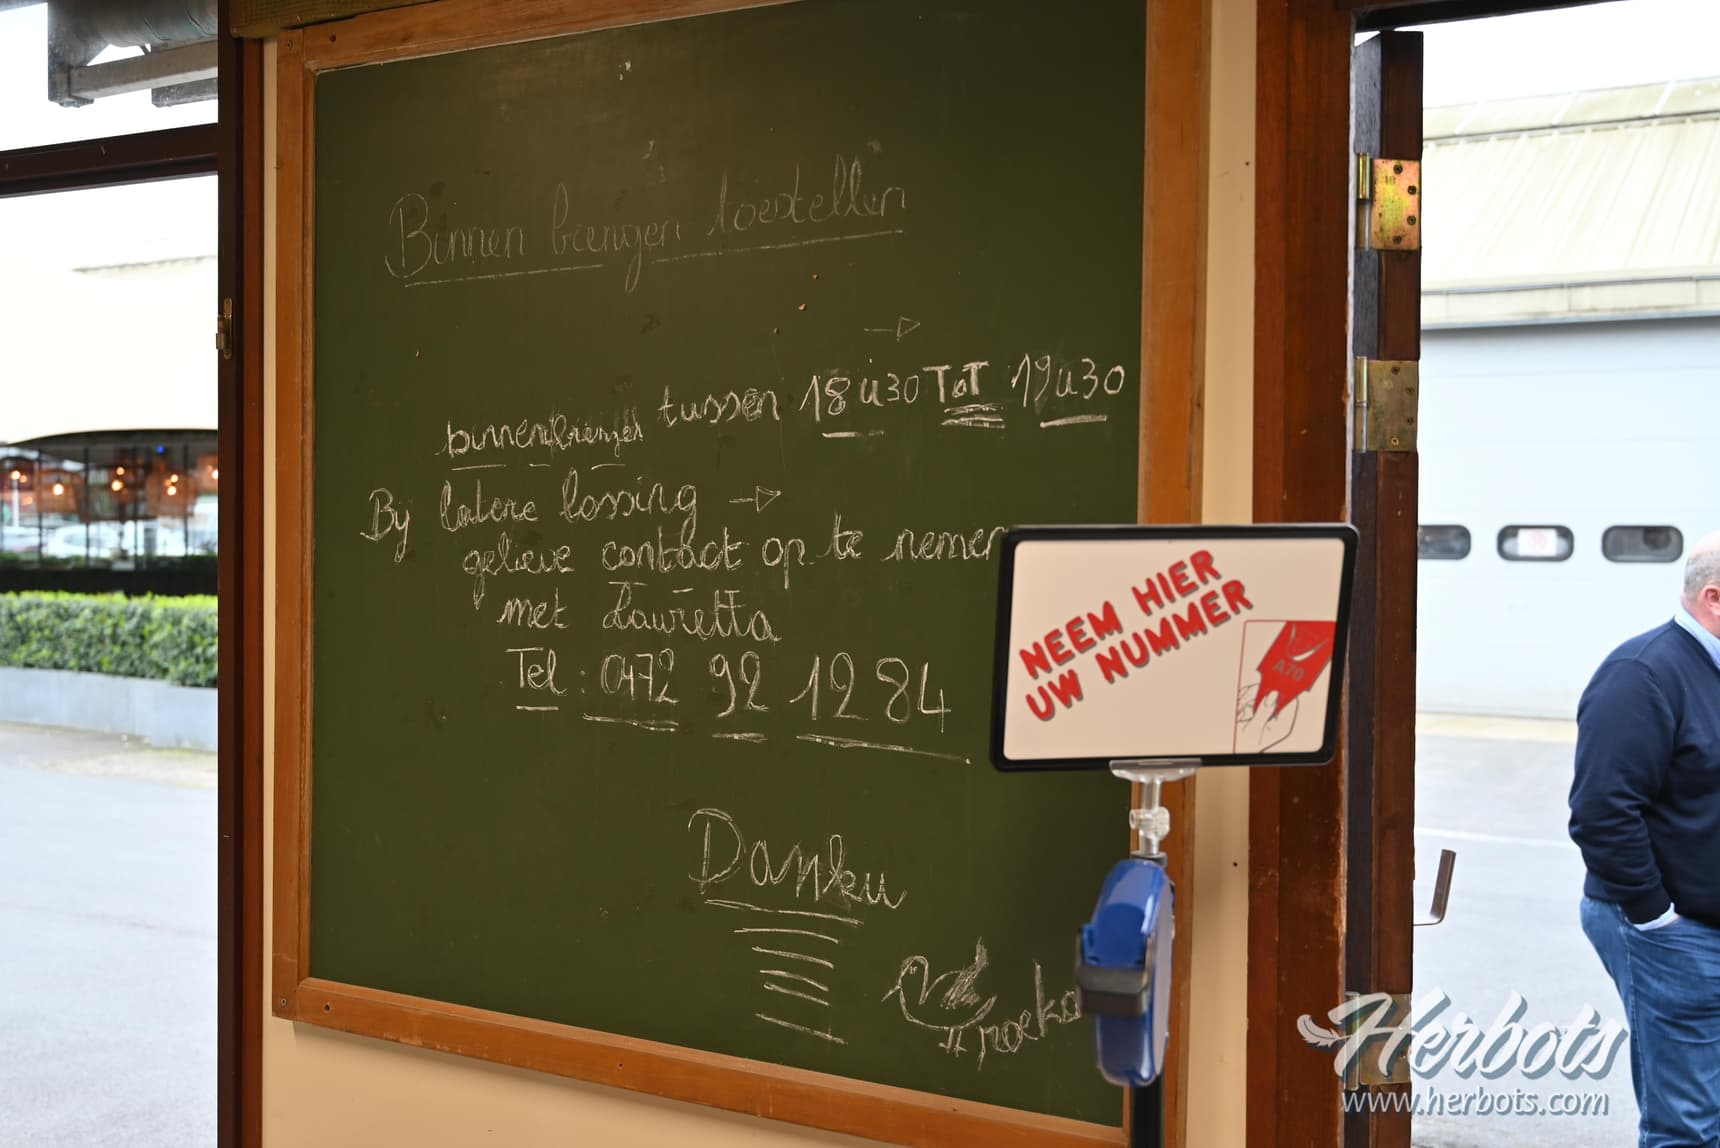 Binnen brengen toestellen
binnenbrengen tussen 18u30 ToT 19u30
By latere lossing
gelieve contact op te nemen
met Lauretta
Tel : 0472 92 12 84
Danku
NEEM HIER
UW NUMMER
A70
Herbots
www.herbots.com